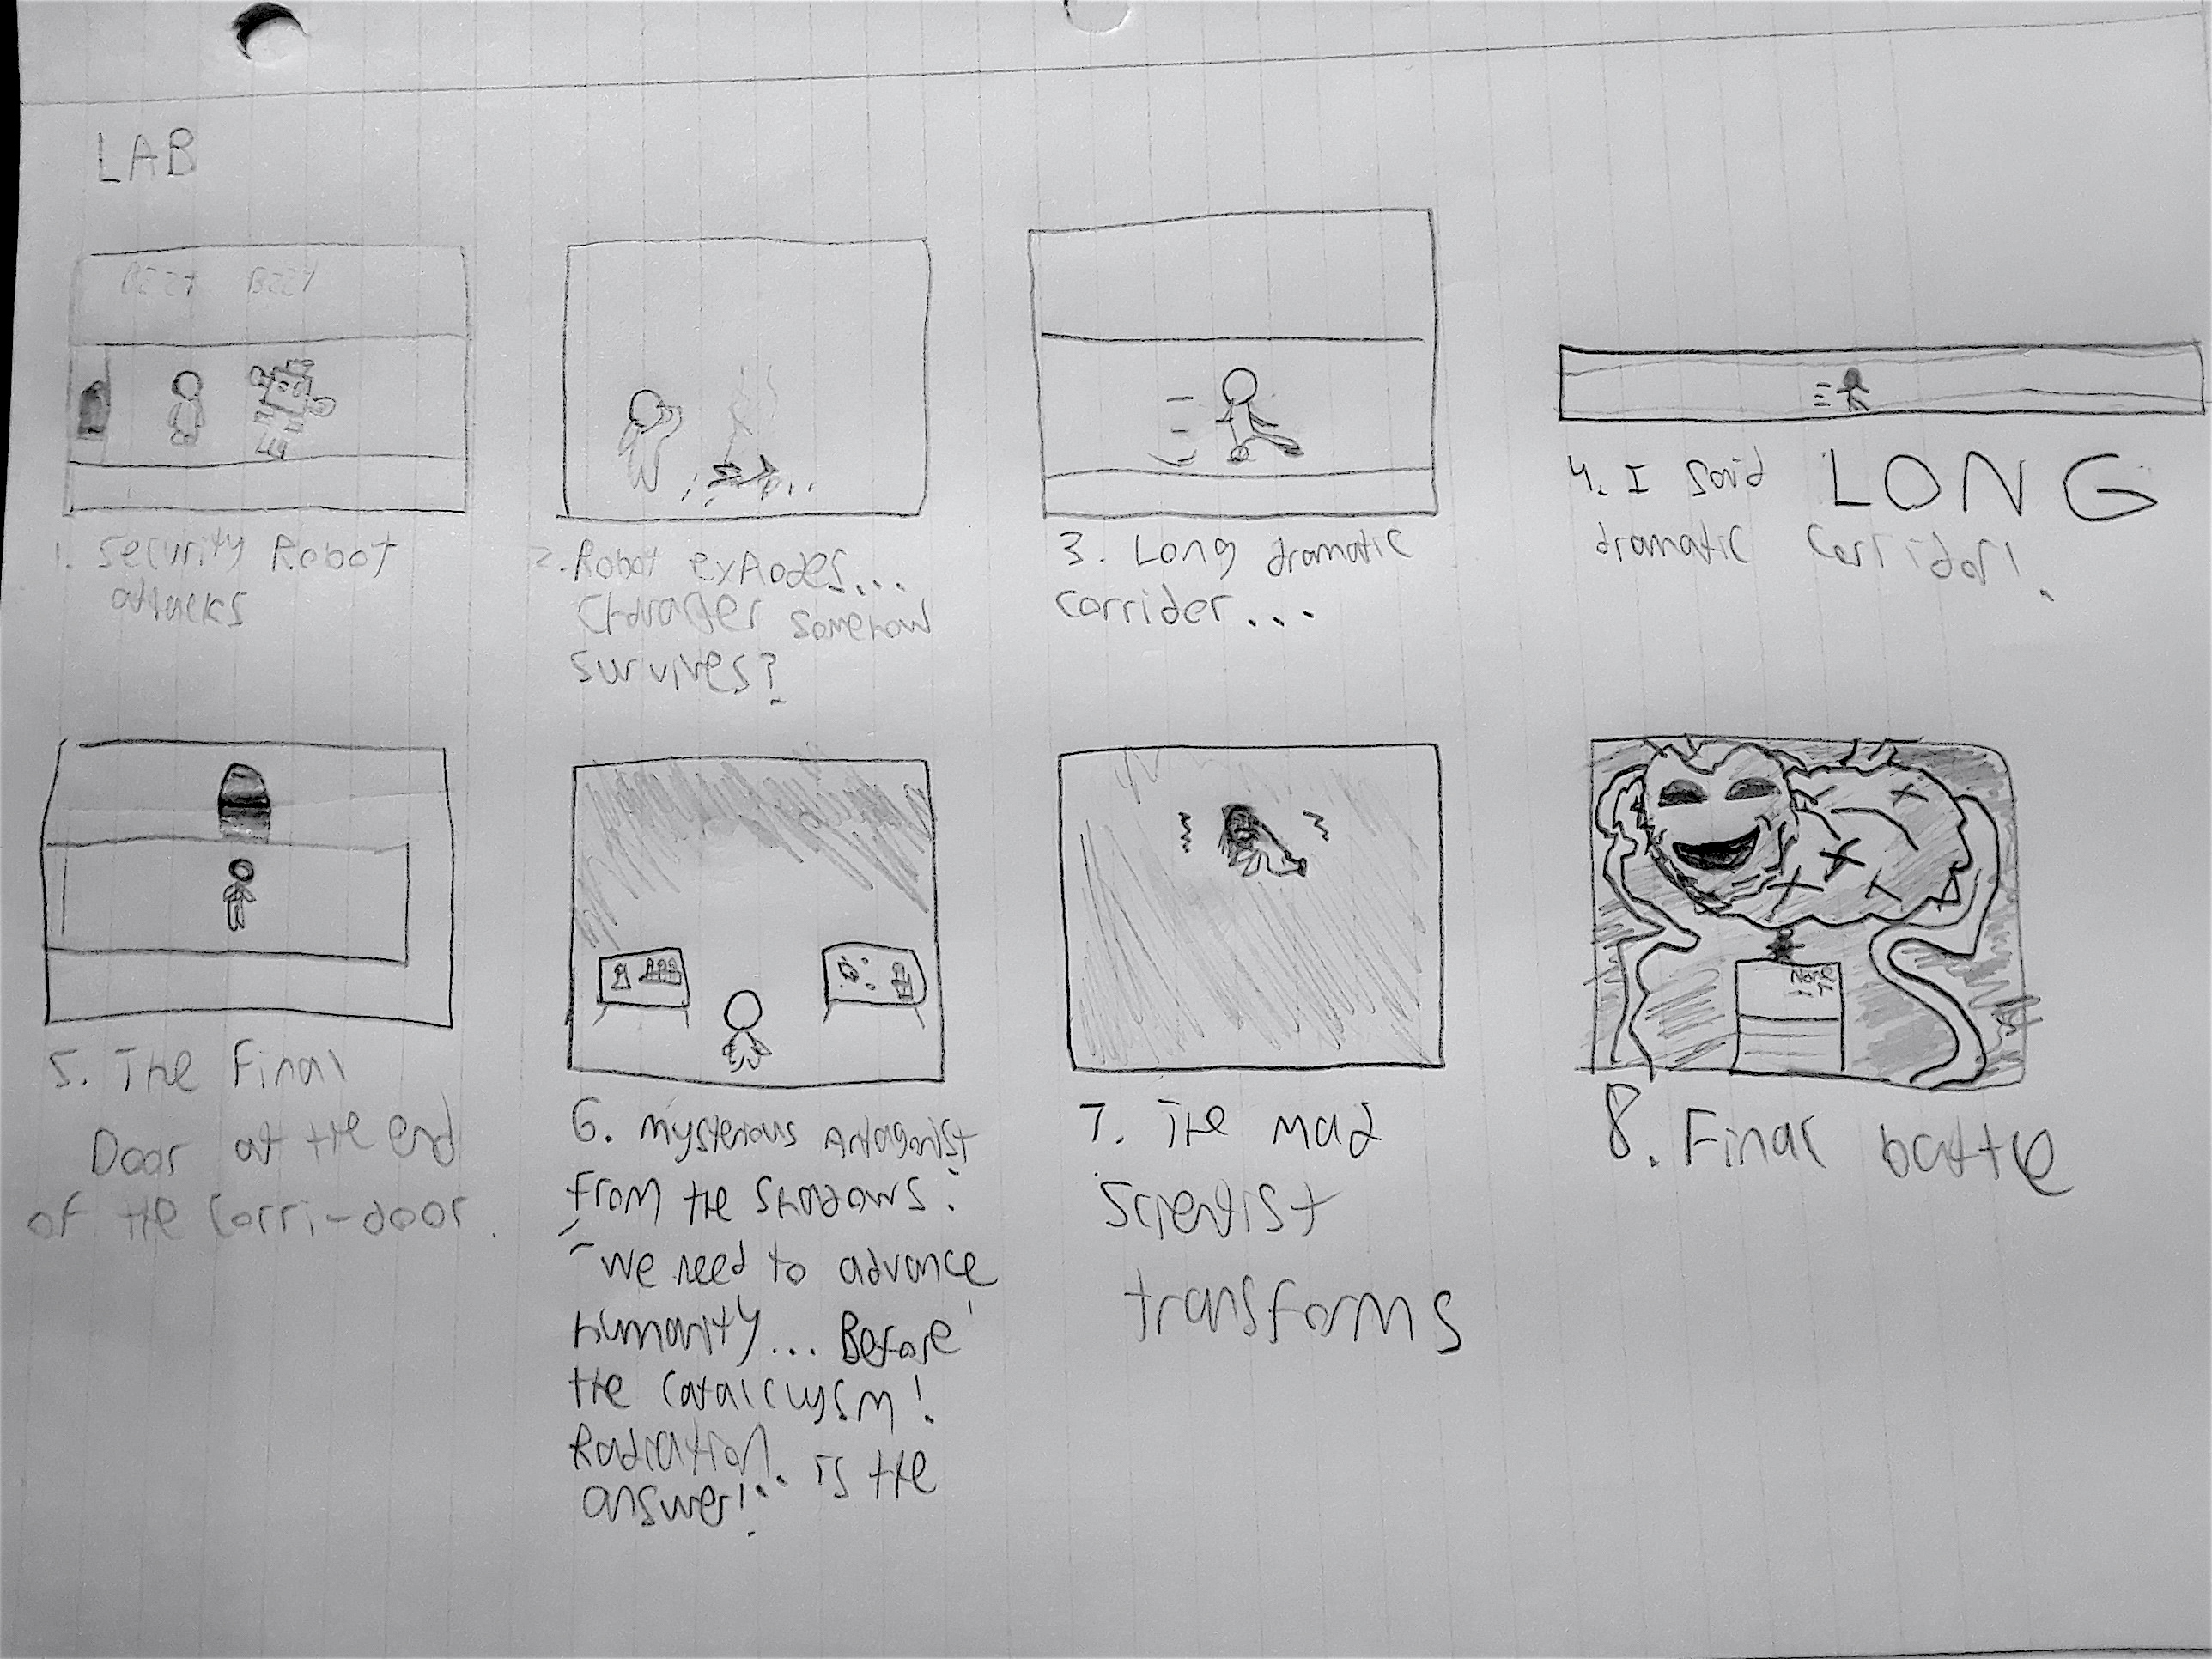 LAB
BZZT BZZT
1. Security Robot
attacks
2. Robot explodes...
Character somehow
survives?
3. Long dramatic
corrider...
4. I said LONG
dramatic Corridor!
5. The Final
Door at the end
of the Corri-door.
6. Mysterious Antagonist
From the Shadows:
"We need to advance
Humanity... Before
the Cataclcysm!
Radiation. is the
answer!"
7. The Mad
Scientist
transforms
8. Final battle